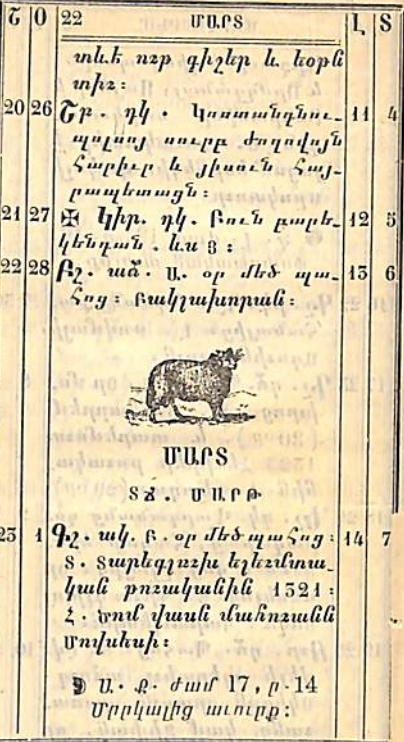 Շ Օ 22 ՄԱՐՏ Լ Տ
տևէ ոռբ գիշեր և եօթն
տիւ :
20 26 Շր. դկ . Կոստանդնու- 11 4
պօլսոյ սուրբ Ժողովոյն
Հարիւր և յիսուն Հայ-
րապետացն :
21 27 ✠ Կիր. դկ. Բուն բարե- 12 5
կենդան . ևս 3 :
22 28 Բշ. աձ. Ա. օր մեծ պա- 13 6
հոց : Բակլախորան :
ՄԱՐՏ
ՏՃ. ՄԱՐԹ
23 1 Գշ. ակ. Բ. օր մեծ պահոց : 14 7
Տ. Տարեգլուխ ելեւմտա-
կան թուականին 1321 :
Հ. Ծոմ վասն մահուանն
Մովսեսի :
Ա. Ք. ժամ 17, ր. 14
Մրրկալից աւուրք :